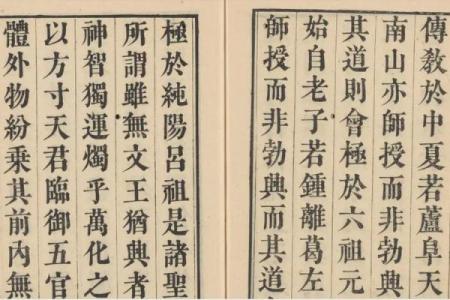 傳敎於中夏若蘆阜天
南山亦師授而非勃興
其道則會極於六祖元
始自老子若鍾離葛左
師授而非勃興而其道
極於純陽呂祖是諸聖
所謂雖無文王猶興者
神智獨運燭乎萬化之
以方寸天君臨御五官
體外物紛乘其前内無